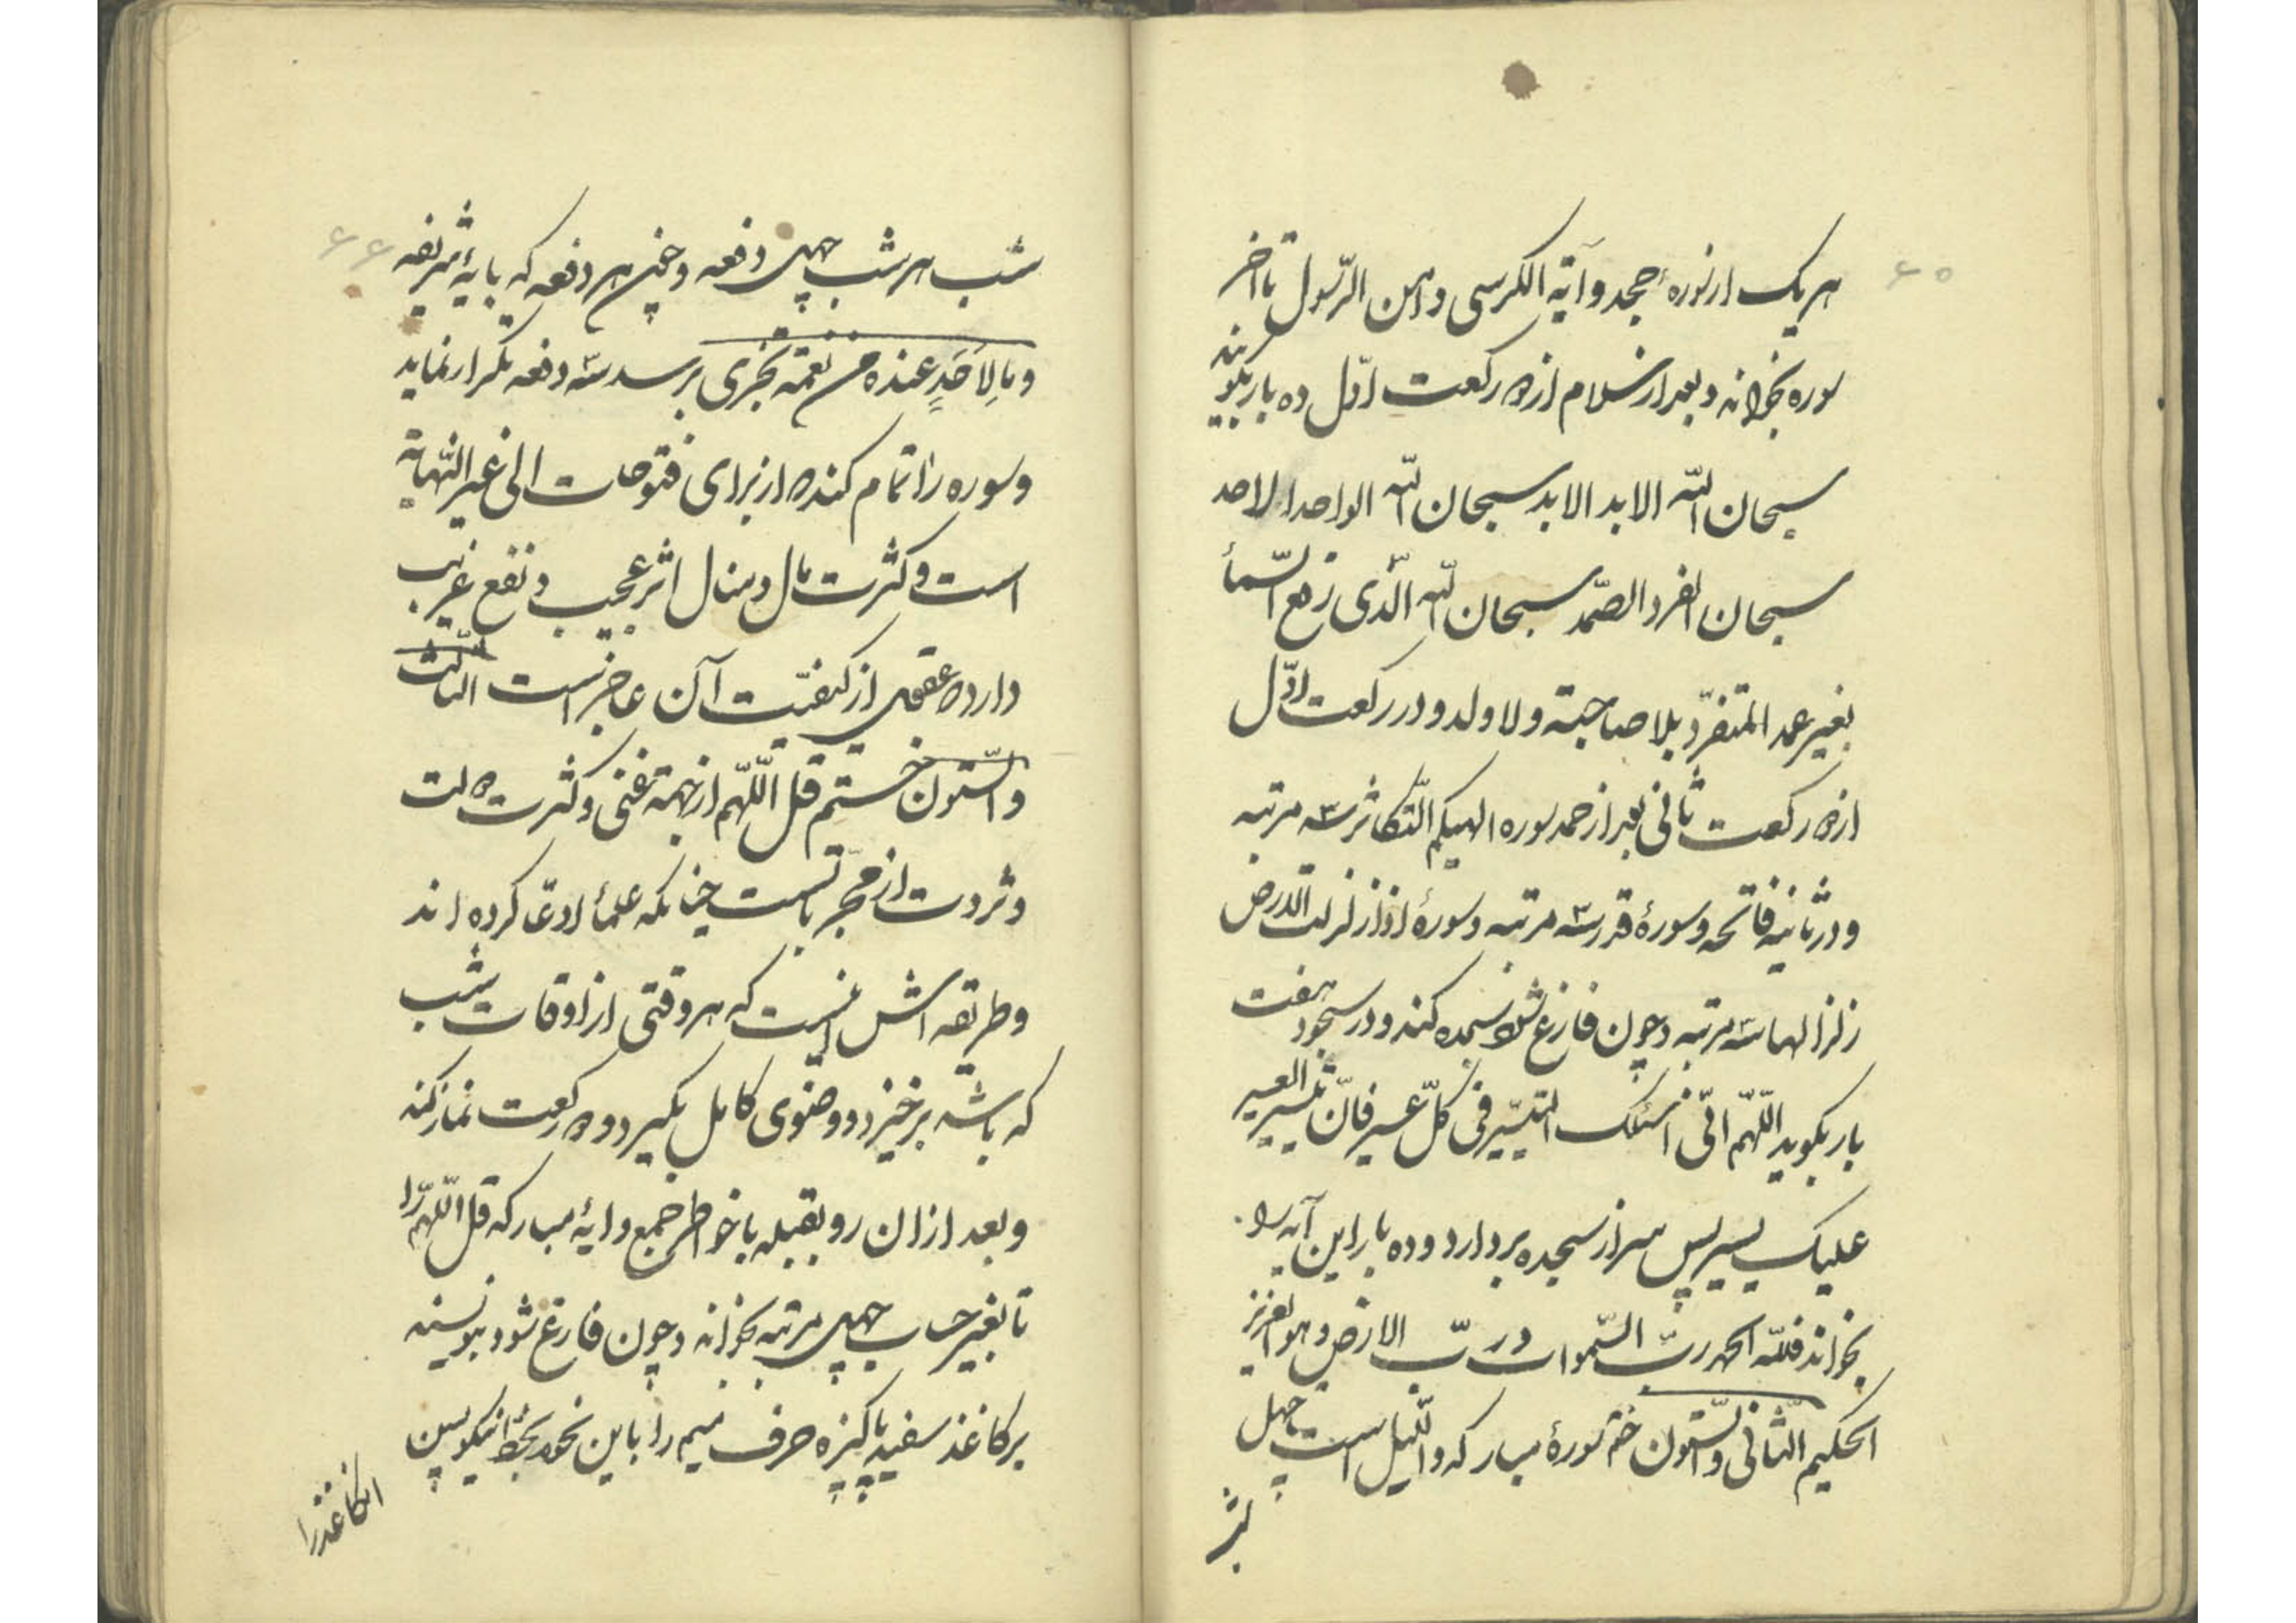 ۶۵
هر یک از سوره جحد و آیة الکرسی و امن الرّسول تا آخر
سوره بخواند و بعد از سلام از دو رکعت اوّل ده بار بگوید
سبحان اللّه الابد الابد سبحان اللّه الواحد الاحد
سبحان الفرد الصّمد سبحان اللّه الّذی رفع السّمأ
بغیر عمد المتفرّد بلا صاحبة ولا ولد و در رکعت اوّل
از دو رکعت ثانی بعد از حمد سوره الهیکم التّکاثر سه مرتبه
و در ثانیه فاتحه و سورهٔ قدر سه مرتبه و سورهٔ اذا زلزلت الارض
زلزالها سه مرتبه و چون فارغ شود سجده کند و در سجود هفت
بار بگوید اللّهم انّی اسئلک التیسّیر فی کلّ عسیر فانّ تیسیر العسیر
علیک یسیر پس سر از سجده بر دارد و ده بار این آیه را
بخواند فللّه الحمد ربّ السّموات و ربّ الارض و هو العزیز
الحکیم الثّانی والسّتون ختم سورهٔ مبارکه واللّیل است چهل
شب
۶۶
شب هر شب چهل دفعه و چنین هر دفعه که بایهٔ شریفه
و ما لِاَحَدٍ عنده من نعمة تجزی برسد سه دفعه تکرار نماید
و سوره را تمام کند که از برای فتوحات الی غیر النّهایة
است و کثرت مال و منال اثر عجیب و نفع غریب
دارد که عقول از کیفیّت آن عاجز است الثّالث
والسّتون ختم قل اللّهم از جهة غنی و کثرت دولت
و ثروت از مجرّباتست چنانکه علمأ ادعّا کرده اند
و طریقه اش اینست که هر وقتی از اوقات شب
که باشد برخیزد و وضوی کامل بگیرد و دو رکعت نماز کند
و بعد از ان رو بقبله با خواطر جمع و ایهٔ مبارکه قل اللّهم را
تا بغیر حساب چهل مرتبه بخواند و چون فارغ شود بنویسد
بر کاغذ سفید پاکیزه حرف میم را باین نحو بخطّ نیکو پس
انکاغذ را